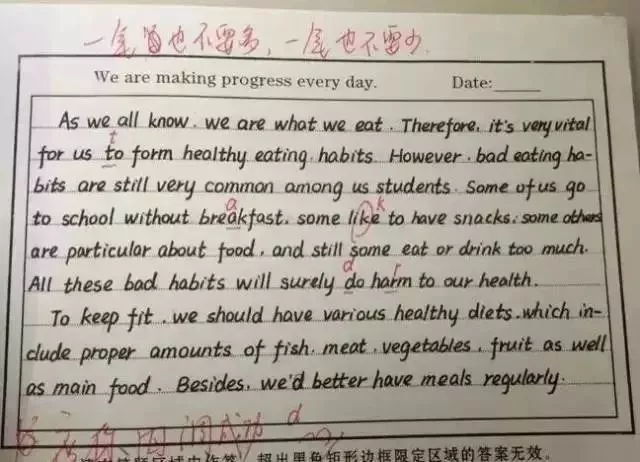 一尾也不要多，一尾也不要少.
We are making progress every day. Date:
As we all know, we are what we eat. Therefore, it's very vital
t
for us to form healthy eating habits. However, bad eating ha-
bits are still very common among us students. Some of us go
a k
to school without breakfast, some like to have snacks, some others
are particular about food, and still some eat or drink too much.
d r
All these bad habits will surely do harm to our health.
To keep fit, we should have various healthy diets, which in-
clude proper amounts of fish, meat, vegetables, fruit as well
as main food. Besides, we'd better have meals regularly.
成功 d
区域内作答，超出黑色矩形边框限定区域的答案无效。